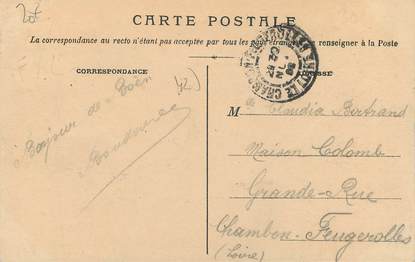 20f
CARTE POSTALE
La correspondance au recto n'étant pas acceptée par tous les pays étrangers renseigner à la Poste
CORRESPONDANCE
(42)
Bonjour de Boën
M Claudia Bertrand
Maison Colomb
Grande-Rue
Chambon-Feugerolles
(Loire)